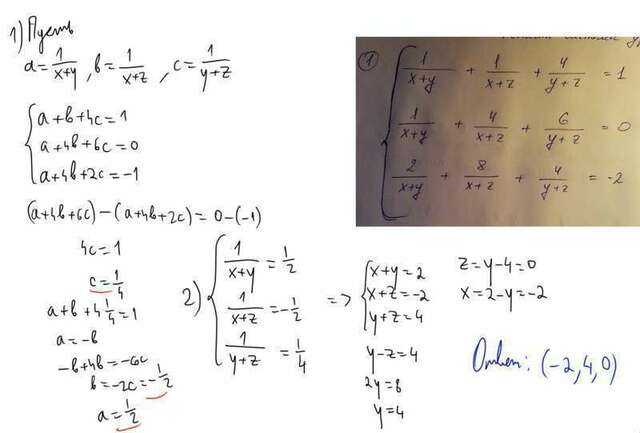 1) Пусть
a = 1/(x+y), b = 1/(x+z), c = 1/(y+z)
{ a+b+4c=1
a+4b+6c=0
a+4b+2c=-1
(a+4b+6c)-(a+4b+2c)=0-(-1)
4c=1
c=1/4
a+b+4 1/4=1
a=-b
-b+4b=-6c
b=-2c=-1/2
a=1/2
2) { 1/(x+y) = 1/2
1/(x+z) = -1/2
1/(y+z) = 1/4
=> { x+y=2
x+z=-2
y+z=4
y-z=4
2y=8
y=4
z=y-4=0
x=2-y=-2
Ответ: (-2,4,0)
① { 1/(x+y) + 1/(x+z) + 4/(y+z) = 1
1/(x+y) + 4/(x+z) + 6/(y+z) = 0
2/(x+y) + 8/(x+z) + 4/(y+z) = -2